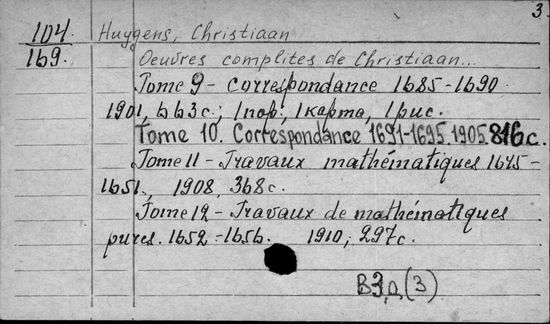 3.
104. Huygens, Christiaan
169. Oeuvres complites de Christiaan...
Tome 9 - Correspondance 1685-1690
1901, 663 с.; 1 пор., 1 карта, 1 рис.
Tome 10. Correspondance 1691-1695. 1905. 816 с.
Tome 11 - Travaux mathématiques 1645-
1651, 1908, 368 с.
Tome 12 - Travaux de mathématiques
pures. 1652-1656. 1910, 297 с.
(3)